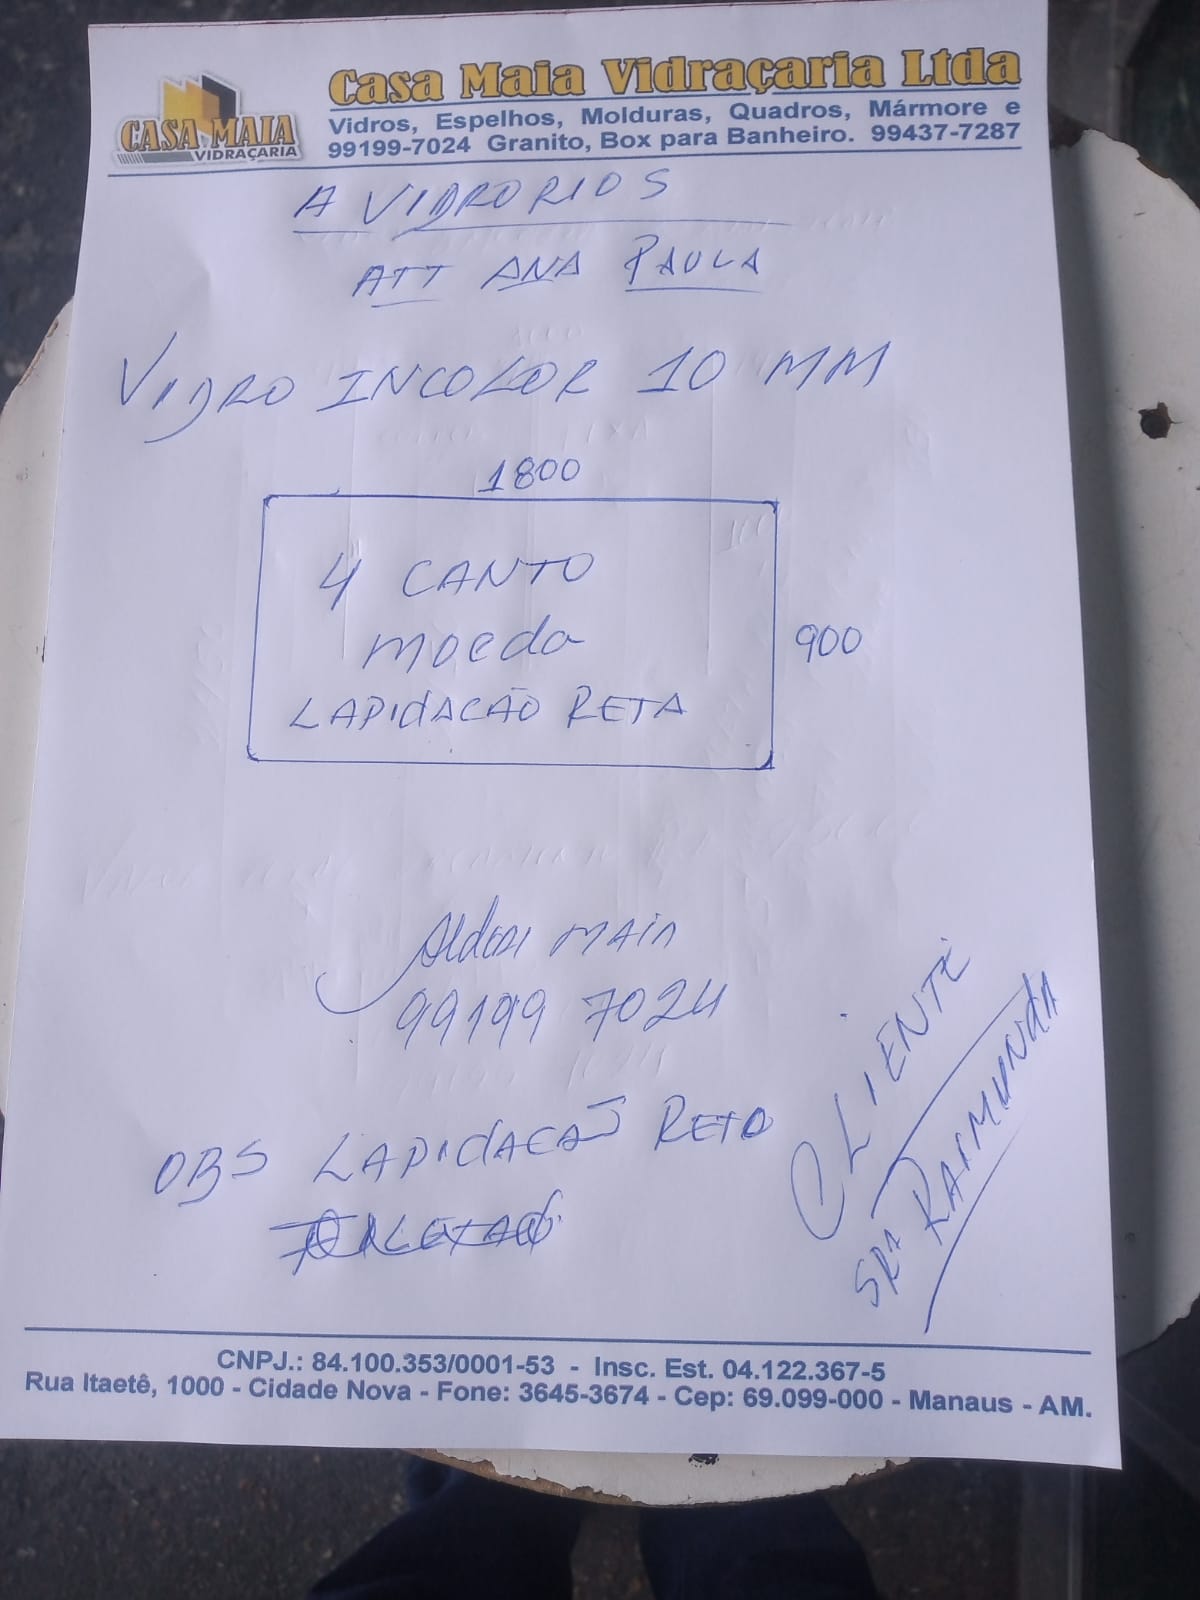 CASA MAIA
VIDRAÇARIA
Casa Maia Vidraçaria Ltda
Vidros, Espelhos, Molduras, Quadros, Mármore e
99199-7024 Granito, Box para Banheiro. 99437-7287
A VIDRORIOS
ATT ANA PAULA
VIDRO INCOLOR 10 MM
1800
4 CANTO
moeda
900
LAPIDACÃO RETA
MAIA
99199 7024
CLIENTE
SRª RAIMUNDA
OBS LAPIDACAÕ RETO
CNPJ.: 84.100.353/0001-53 - Insc. Est. 04.122.367-5
Rua Itaetê, 1000 - Cidade Nova - Fone: 3645-3674 - Cep: 69.099-000 - Manaus - AM.